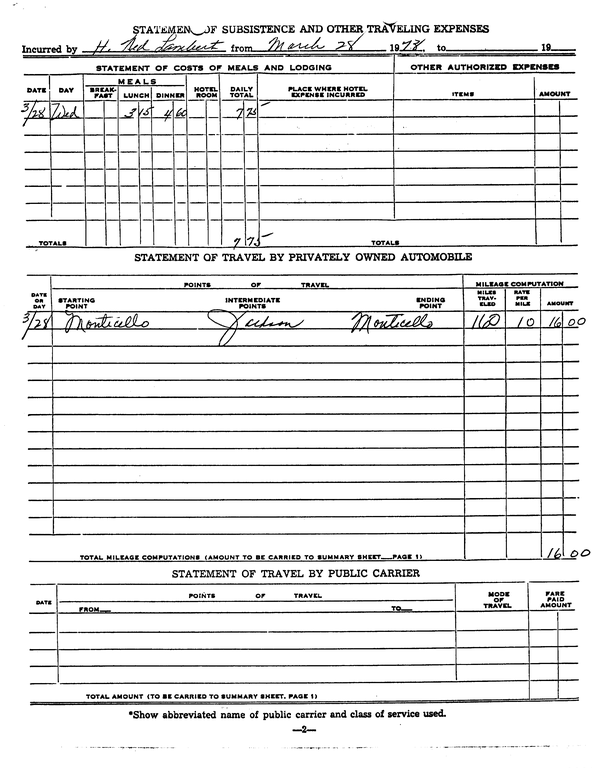 STATEMEN OF SUBSISTENCE AND OTHER TRAVELING EXPENSES
Incurred by H. Ned Lambert from March 28 1978, to 19
STATEMENT OF COSTS OF MEALS AND LODGING OTHER AUTHORIZED EXPENSES
DATE DAY MEALS BREAK-FAST LUNCH DINNER HOTEL ROOM DAILY TOTAL PLACE WHERE HOTEL EXPENSE INCURRED ITEMS AMOUNT
3/28 Wed 3 15 4 60 7 75
TOTALS 7 75 TOTALS
STATEMENT OF TRAVEL BY PRIVATELY OWNED AUTOMOBILE
DATE OR DAY POINTS OF TRAVEL MILEAGE COMPUTATION
STARTING POINT INTERMEDIATE POINTS ENDING POINT MILES TRAV-ELED RATE PER MILE AMOUNT
3/28 Monticello Jackson Monticello 160 10 16 00
TOTAL MILEAGE COMPUTATIONS (AMOUNT TO BE CARRIED TO SUMMARY SHEET PAGE 1) 16 00
STATEMENT OF TRAVEL BY PUBLIC CARRIER
DATE POINTS OF TRAVEL MODE OF TRAVEL FARE PAID AMOUNT
FROM TO
TOTAL AMOUNT (TO BE CARRIED TO SUMMARY SHEET, PAGE 1)
*Show abbreviated name of public carrier and class of service used.
—2—